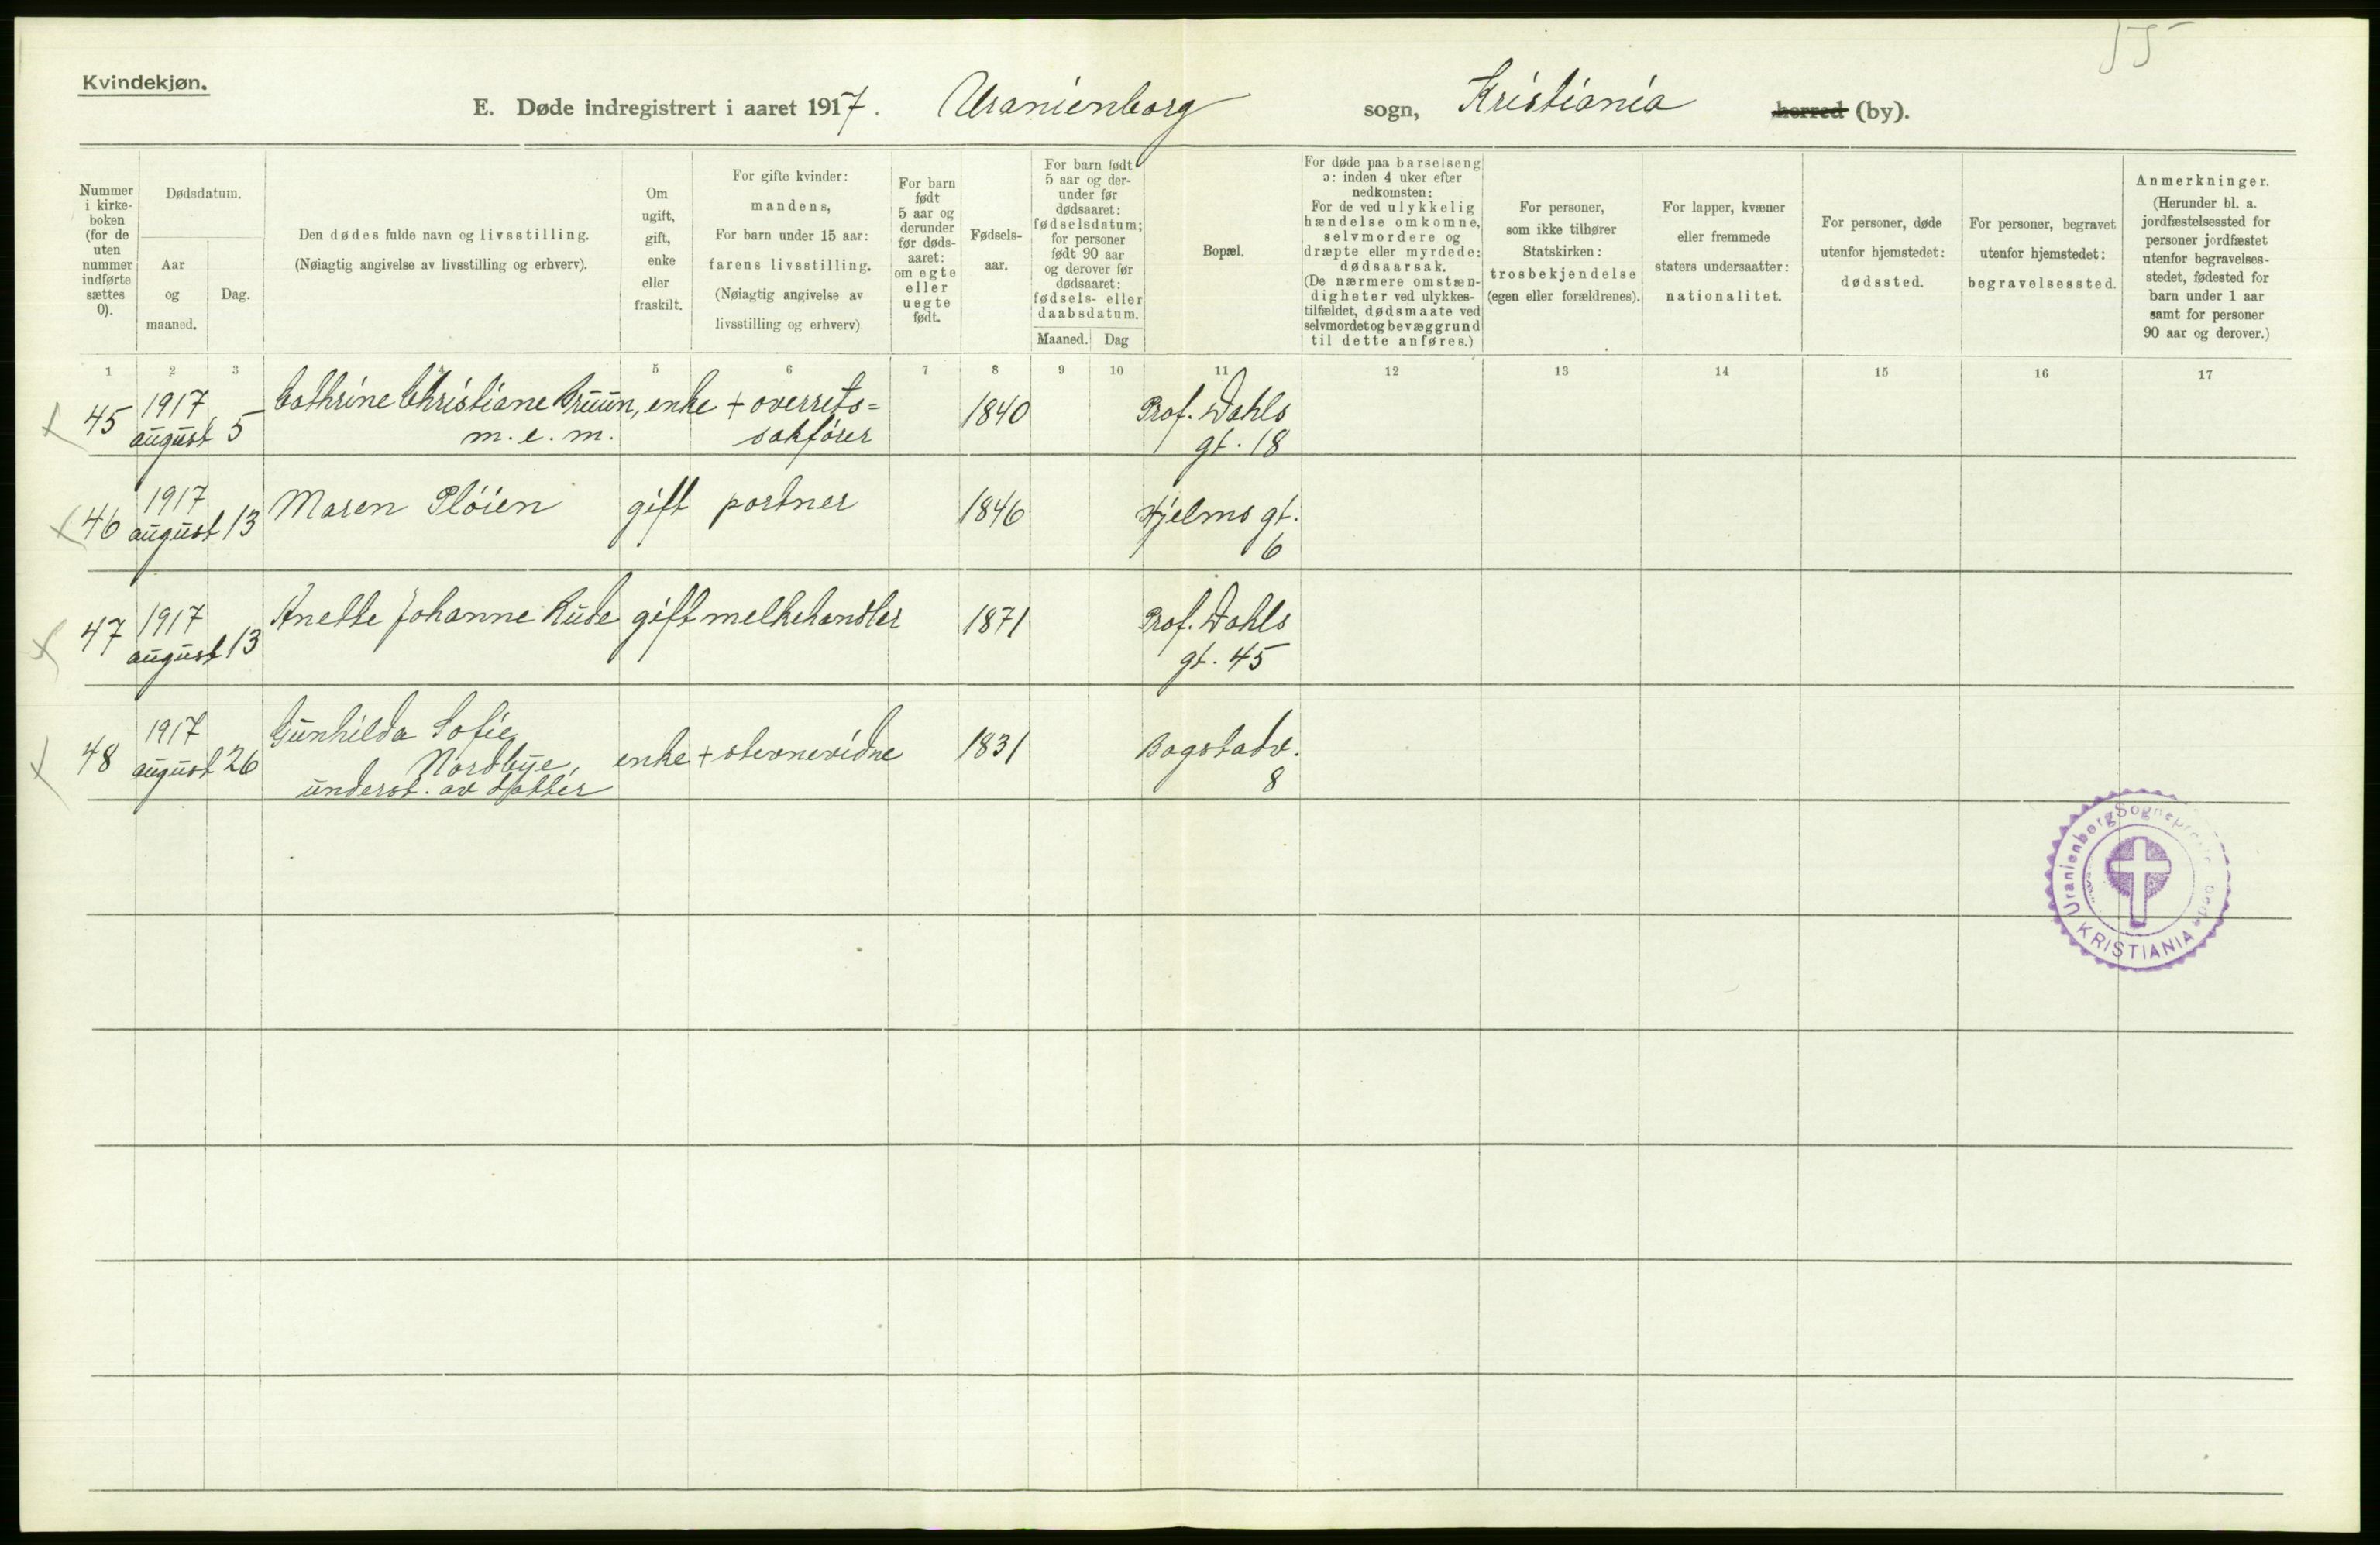 55
Kvindekjøn.
E. Døde indregistrert i aaret 1917. Uranienborg sogn, Kristiania herred (by).
Nummer i kirkeboken (for de uten nummer indførte sættes 0).
Dødsdatum.
Aar og maaned.
Dag.
Den dødes fulde navn og livsstilling.
(Nøiagtig angivelse av livsstilling og erhverv).
Om ugift, gift, enke eller fraskilt.
For gifte kvinder:
mandens,
For barn under 15 aar:
farens livsstilling.
(Nøiagtig angivelse av
livsstilling og erhverv)
For barn
født
5 aar og
derunder
før døds-
aaret:
om egte
eller
uegte
født.
Fødsels-
aar.
For barn født
5 aar og der-
under før
dødsaaret:
fødselsdatum;
for personer
født 90 aar
og derover før
dødsaaret:
fødsels- eller
daabsdatum.
Maaned. Dag
Bopæl.
For døde paa barselseng
ɔ: inden 4 uker efter
nedkomsten:
For de ved ulykkelig
hændelse omkomne,
selvmordere og
dræpte eller myrdede:
dødsaarsak.
(De nærmere omstæn-
digheter ved ulykkes-
tilfældet, dødsmaate ved
selvmordet og bevæggrund
til dette anføres.)
For personer,
som ikke tilhører
Statskirken:
trosbekjendelse
(egen eller forældrenes).
For lapper, kvæner
eller fremmede
staters undersaatter:
nationalitet.
For personer, døde
utenfor hjemstedet:
dødssted.
For personer, begravet
utenfor hjemstedet:
begravelsessted.
Anmerkninger.
(Herunder bl. a.
jordfæstelsessted for
personer jordfæstet
utenfor begravelses-
stedet, fødested for
barn under 1 aar
samt for personer
90 aar og derover.)
1 2 3 5 6 7 8 9 10 11 12 13 14 15 16 17
45 1917 august 5 Cathrine Christiane Bruun, enke + overrets= 1840 Prof. Dahls
m.e.m. sakfører gt. 18
46 1917 august 13 Maren Pløien gift portner 1846 Hjelms gt.
6
47 1917 august 13 Anette Johanne Rude gift melkehandler 1871 Prof. Dahls
gt. 45
48 1917 august 26 Gunhilda Sofie
Nordbye, enke + stevnevidne 1831 Bogstadv.
underst. av datter 8
Uranienborg
KRISTIANIA